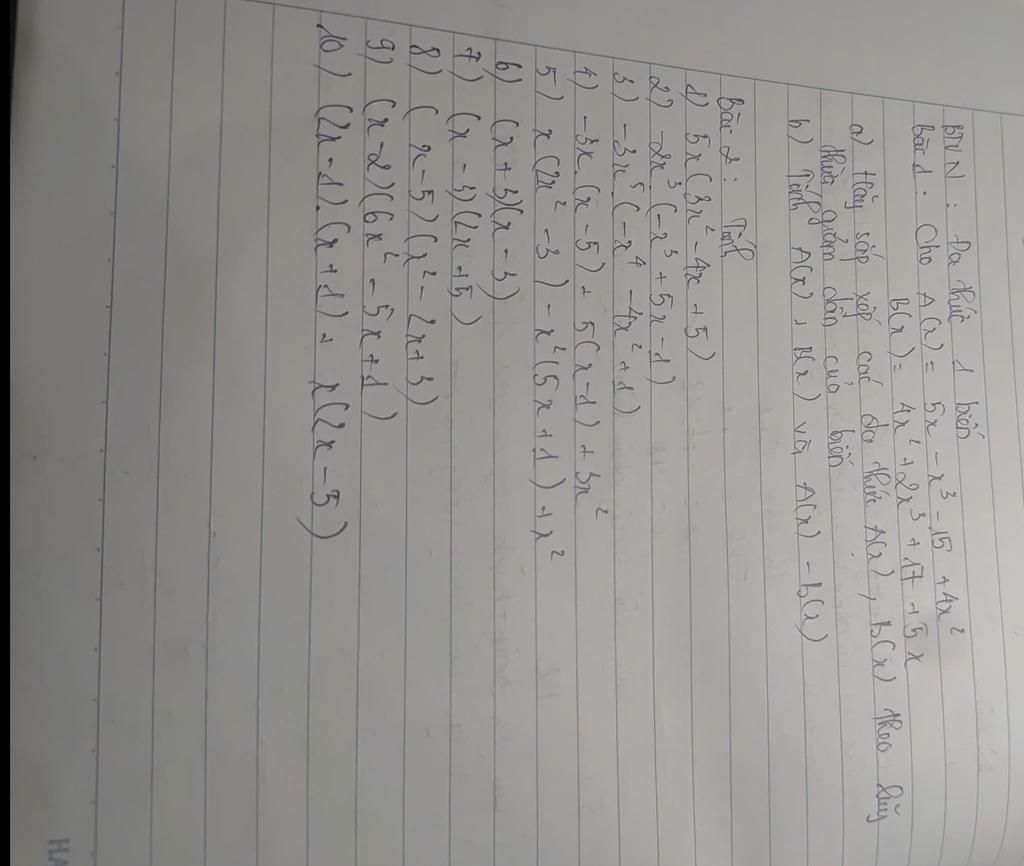 BTVN : Đa thức 1 biến
Bài 1 : Cho A(x) = 5x - x³ - 15 + 4x²
B(x) = 4x² + 2x³ + 17 + 5x
a) Hãy sắp xếp các đa thức A(x), B(x) theo lũy
thừa giảm dần của biến
b) Tính A(x) + B(x) và A(x) - B(x)
Bài 2 : Tính
1) 5x(3x² - 4x + 5)
2) -2x³(-x³ + 5x - 1)
3) -3x⁵(-x⁴ - 4x² + 1)
4) -3x(x - 5) + 5(x - 1) + 3x²
5) x(2x² - 3) - x²(5x + 1) + x²
6) (x + 3)(x - 3)
7) (x - 3)(2x + 5)
8) (x - 5)(x² - 2x + 3)
9) (x - 2)(6x² - 5x + 1)
10) (2x - 1).(x + 1) + x(2x - 5)
HA